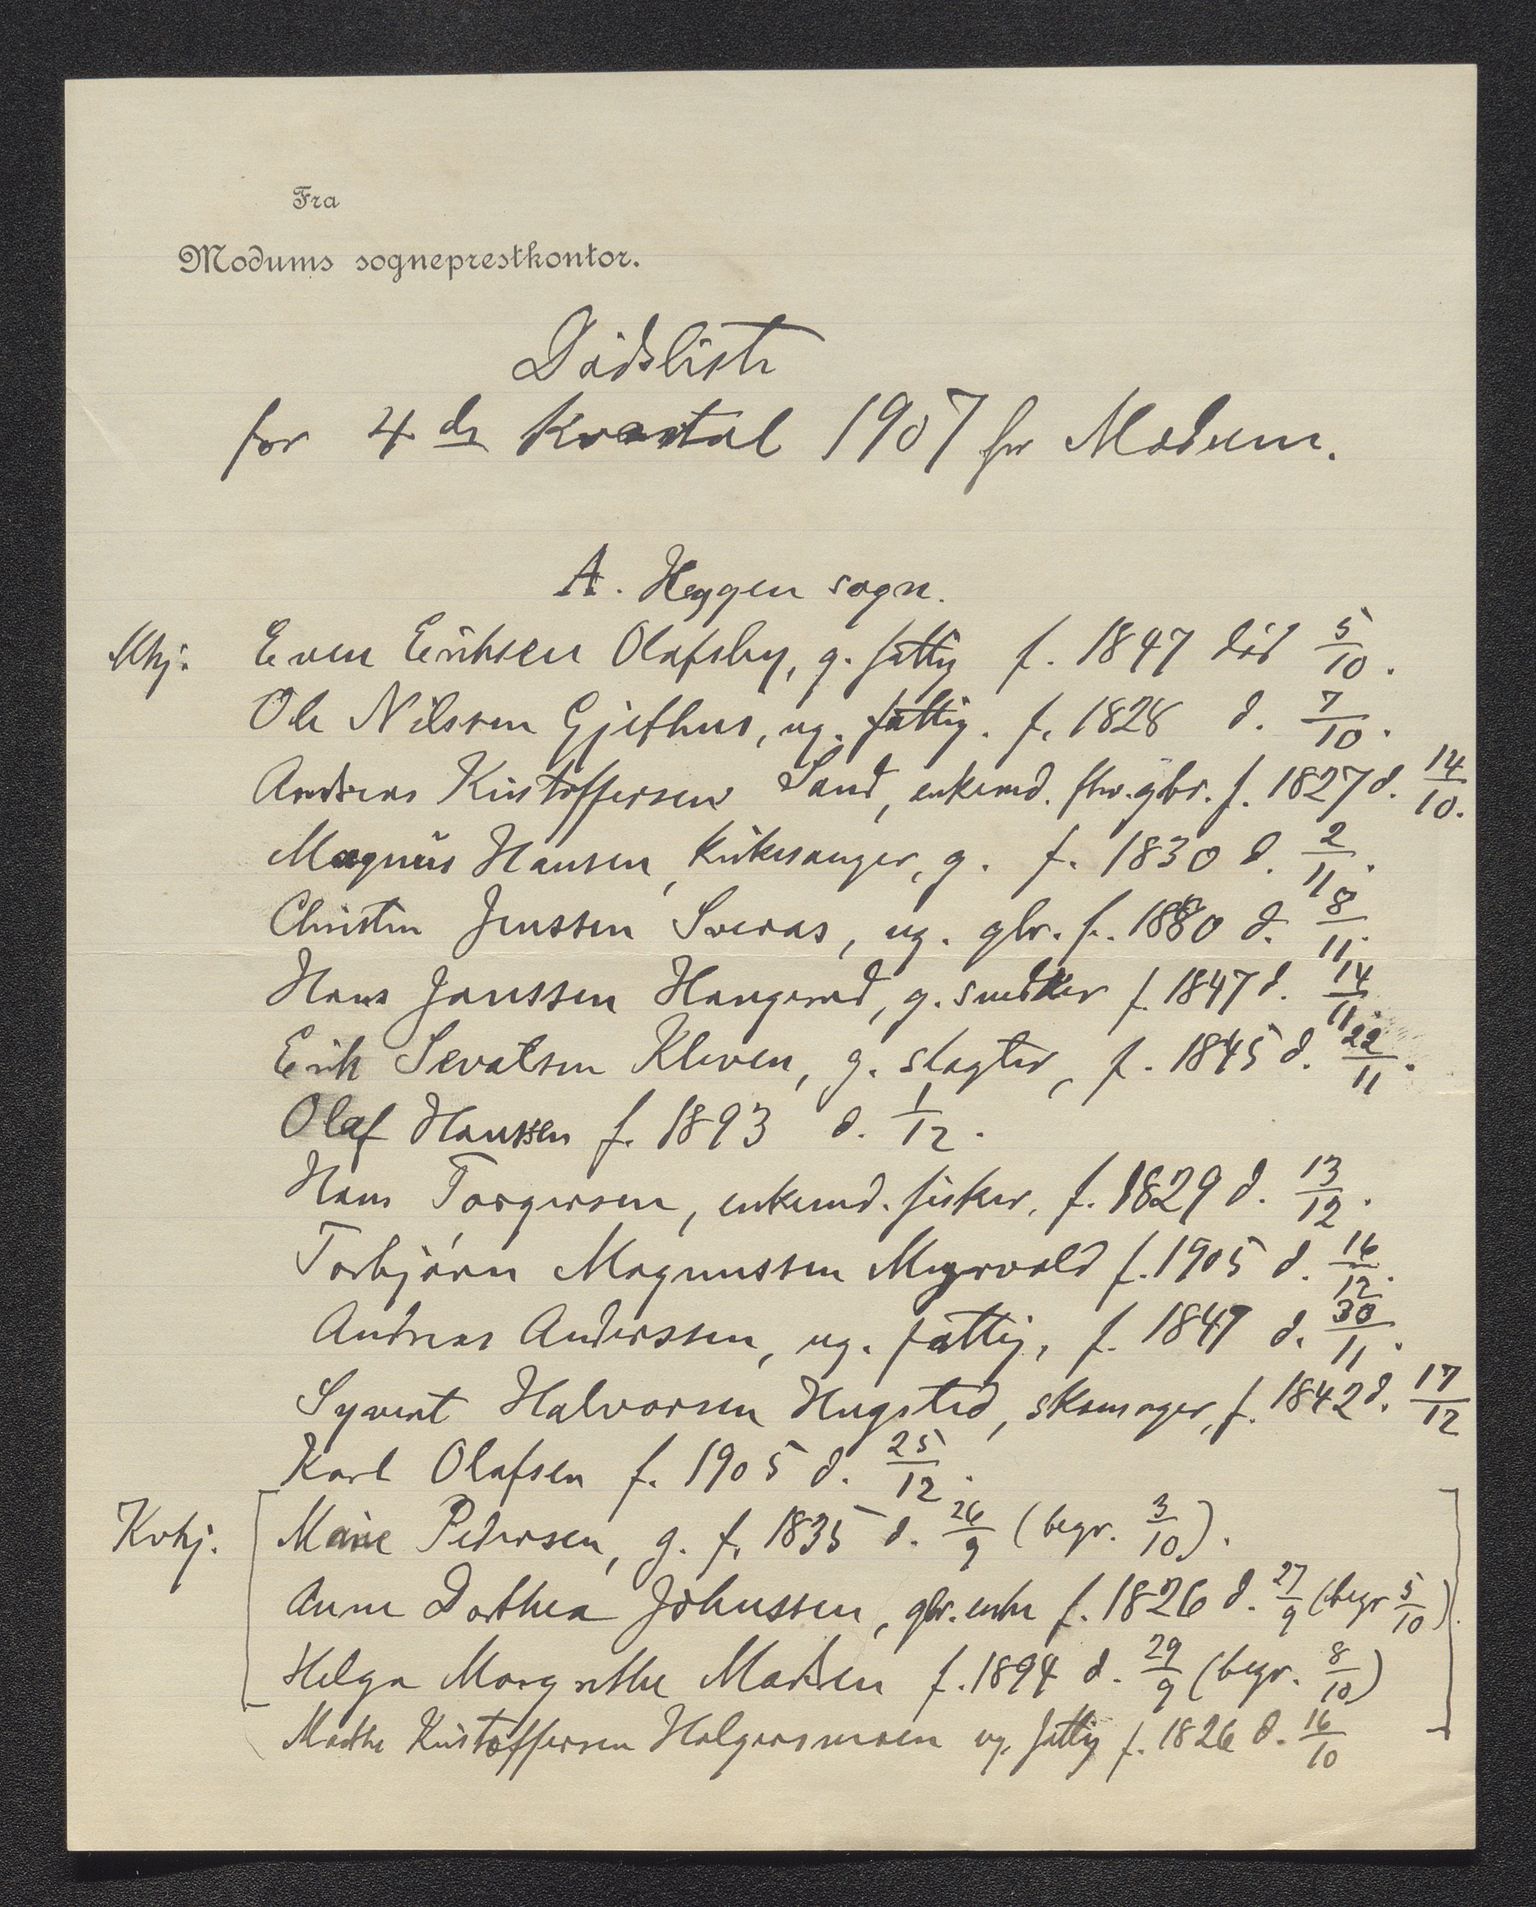 Fra
Modums sogneprestkontor.
Dødsliste
for 4de Kvartal 1907 for Modum.
A. Heggen sogn.
Mkj. Even Eriksen Olafsby, g. fattig f. 1847 død 5/10.
Ole Nilssen Gjethus, ug. fattig. f. 1828 d. 7/10.
Andreas Kristoffersen Sand, enkemd. fhv. gbr. f. 1827 d. 14/10.
Magnus Hansen, kirkesanger, g. f. 1830 d. 2/11.
Christen Jenssen Sveaas, ug. gbr. f. 1880 d. 8/11.
Hans Janssen Haugerud, g. snedker f. 1847 d. 14/11.
Erik Sevatsen Kleven, g. slagter, f. 1845 d. 22/11.
Olaf Hanssen f. 1893 d. 1/12.
Hans Torgersen, enkemd. fisker, f. 1829 d. 13/12.
Torbjørn Magnussen Myrvold f. 1905 d. 16/12.
Andreas Anderssen, ug. fattig, f. 1847 d. 30/11.
Syvert Halvorsen Hugsted, skomager, f. 1842 d. 17/12
Karl Olafsen f. 1905 d. 25/12.
Kvkj. [Marie Pedersen, g. f. 1835 d. 26/9 (begr. 3/10).
Anne Dorthea Johnssen, gbr. enke f. 1826 d. 27/9 (begr 5/10)
Helga Margrethe Madsen f. 1894 d. 29/9 (begr. 8/10)]
Marthe Kristoffersen Holgersmoen ug. fattig f. 1826 d. 16/10